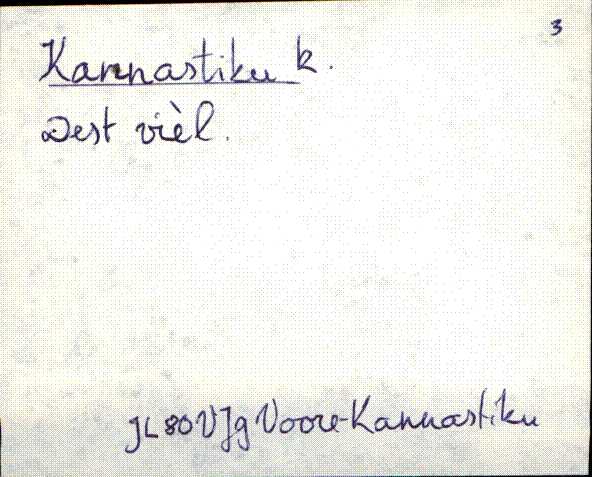 3
Kannastiku k.
Dest vièl.
JL 80 VJg Voore-Kannastiku